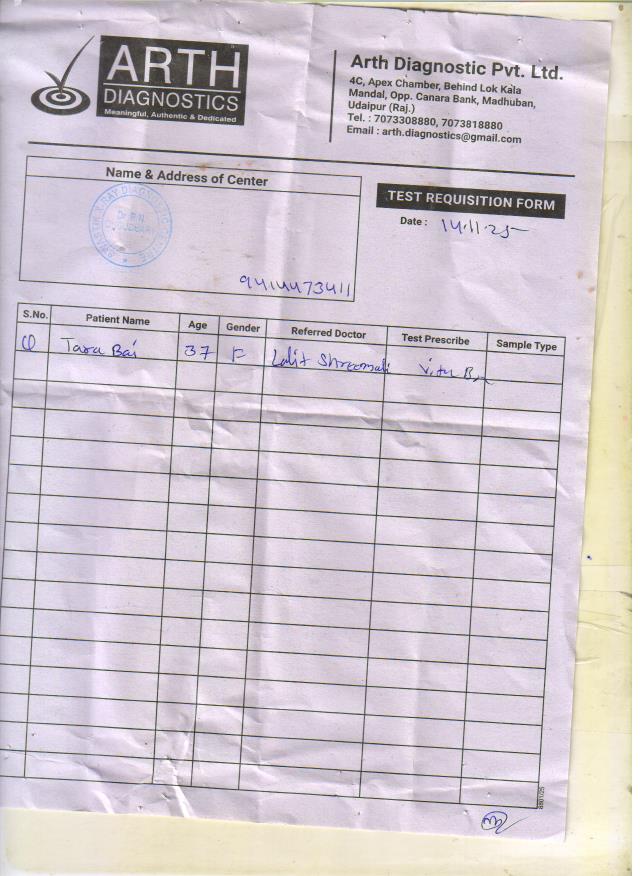 ARTH
DIAGNOSTICS
Meaningful, Authentic & Dedicated
Arth Diagnostic Pvt. Ltd.
4C, Apex Chamber, Behind Lok Kala
Mandal, Opp. Canara Bank, Madhuban,
Udaipur (Raj.)
Tel. : 7073308880, 7073818880
Email : arth.diagnostics@gmail.com
Name & Address of Center
TEST REQUISITION FORM
Date : 14.11.25
9414473411
S.No. Patient Name Age Gender Referred Doctor Test Prescribe Sample Type
Tara Bai 37 F Lalit Shreemali
8801/25